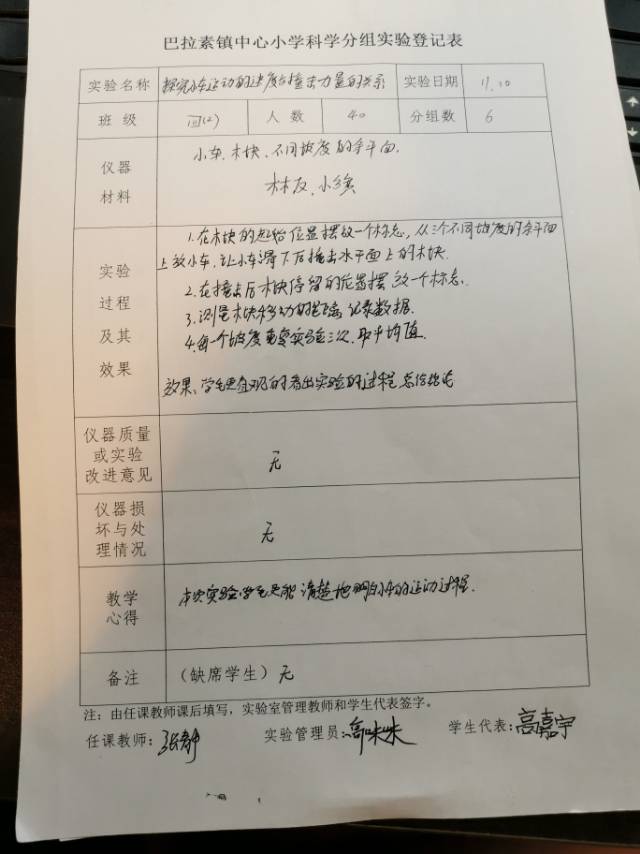 巴拉素镇中心小学科学分组实验登记表
实验名称 探究小车运动的速度与撞击力量的关系 实验日期 11.10
班级 四(2) 人数 40 分组数 6
仪器材料 小车、木块、不同坡度的斜平面.
实验过程及其效果 1.在木块的起始位置摆放一个标志，从三个不同坡度的斜平面
上放小车，让小车滑下后撞击水平面上的木块.
2.在撞击后木块停留的位置摆放一个标志.
3.测量木块移动的距离，记录数据.
4.每一个坡度重复实验三次，取平均值.
效果：学生更直观的看出实验的过程
仪器质量或实验改进意见 无
仪器损坏与处理情况 无
教学心得 本次实验学生更能清楚地明白小车的运动过程.
备注 (缺席学生) 无
注：由任课教师课后填写，实验室管理教师和学生代表签字。
任课教师： 实验管理员： 学生代表：高嘉宇